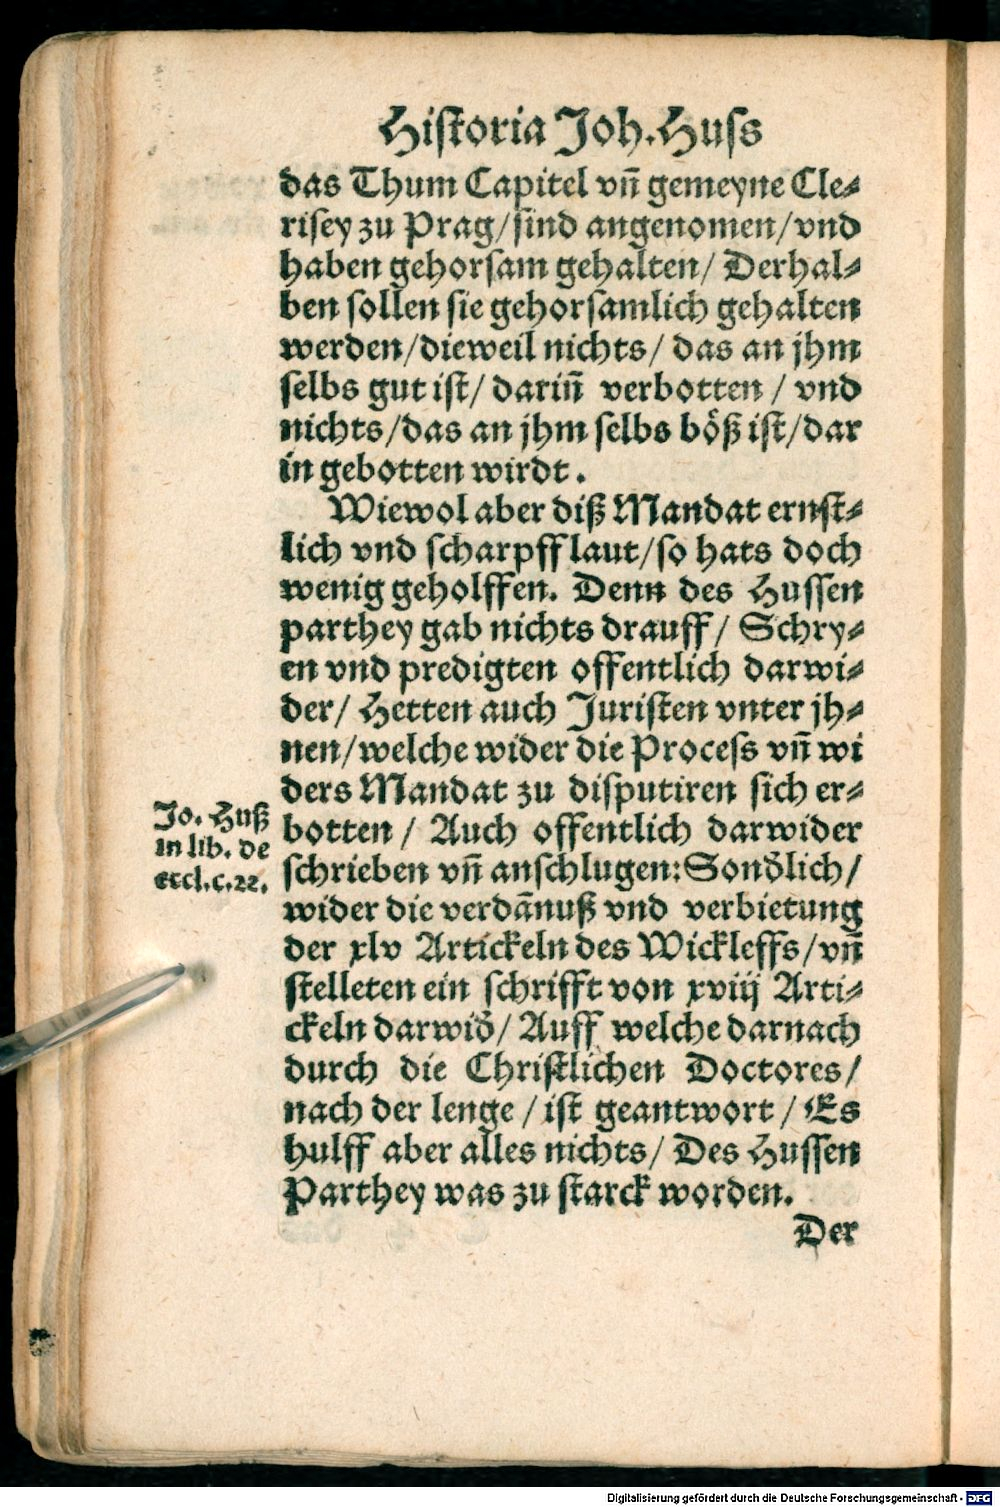 Historia Joh. Huſs
das Thum Capitel vñ gemeyne Cle⸗
riſey zu Prag/ſind angenomen/vnd
haben gehorſam gehalten/ Derhal⸗
ben ſollen ſie gehorſamlich gehalten
werden/dieweil nichts/ das an jhm
ſelbs gut iſt/ dariñ verbotten / vnd
nichts/das an jhm ſelbs böß iſt/dar
in gebotten wirdt.
Wiewol aber diß Mandat ernſt⸗
lich vnd ſcharpff laut/ſo hats doch
wenig geholffen. Denn des Huſſen
parthey gab nichts drauff/ Schry⸗
en vnd predigten offentlich darwi⸗
der/ Hetten auch Juriſten vnter jh⸗
nen/welche wider die Proceſs vñ wi
ders Mandat zu diſputiren ſich er⸗
botten / Auch offentlich darwider
ſchrieben vñ anſchlugen:Sond̕lich/
wider die verdãnuß vnd verbietung
der xlv Artickeln des Wickleffs/vñ
ſtelleten ein ſchrifft von xviij Arti⸗
ckeln darwid̕/ Auff welche darnach
durch die Chriſtlichen Doctores/
nach der lenge / iſt geantwort / Es
hulff aber alles nichts/ Des Huſſen
Parthey was zu ſtarck worden.
Der
Jo. Huß
in lib. de
eccl.c.22.
Digitalisierung gefördert durch die Deutsche Forschungsgemeinschaft - DFG